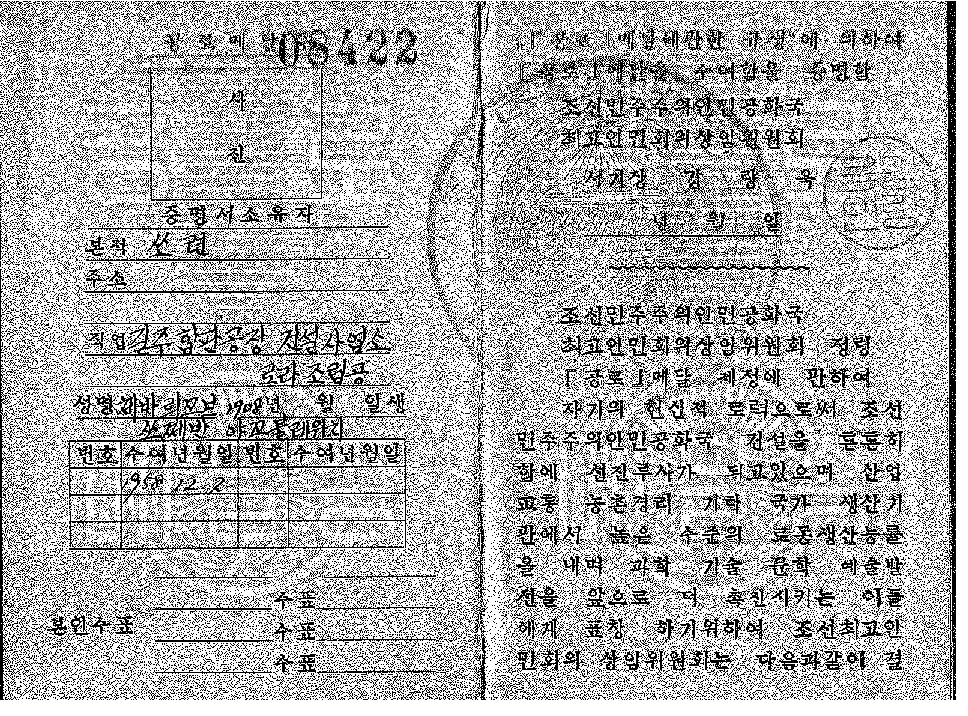 08422
사
진
증명서소유자
본적 쏘련
주소
직업 길주합판공장 건설사업소
조립공
성명 1908년 월 일생
번호 수여년월일 번호 수여년월일
1958 12. 2
수표
본인수표 수표
수표
「공로」메달에관한 규정에 의하여
「공로」메달을 수여함을 증명함
조선민주주의인민공화국
최고인민회의상임위원회
서기장 강 량 욱
년 월 일
조선민주주의인민공화국
최고인민회의상임위원회 정령
「공로」메달 제정에 관하여
자기의 헌신적 로력으로써 조선
민주주의인민공화국 건설을 튼튼히
함에 선진투사가 되고있으며 산업
교통 농촌경리 기타 국가 생산기
관에서 높은 수준의 로동생산능률
을 내며 과학 기술 문학 예술발
전을 앞으로 더 촉진시키는 이들
에게 표창 하기위하여 조선최고인
민회의 상임위원회는 다음과같이 결